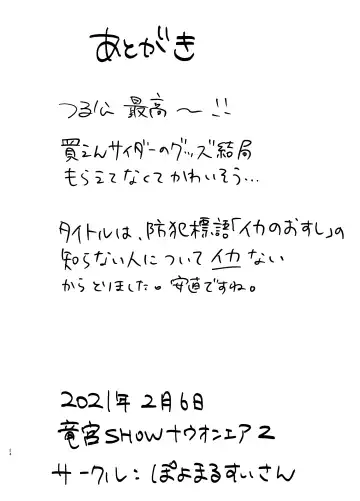 あとがき
つる公 最高〜!!
買えんサイダーのグッズ結局
もらえてなくてかわいそう…
タイトルは、防犯標語「イカのおすし」の
知らない人についてイカない
からとりました。安直ですね。
2021年2月6日
竜宮SHOWナウオンエア2
サークル:ぽよまるすいさん